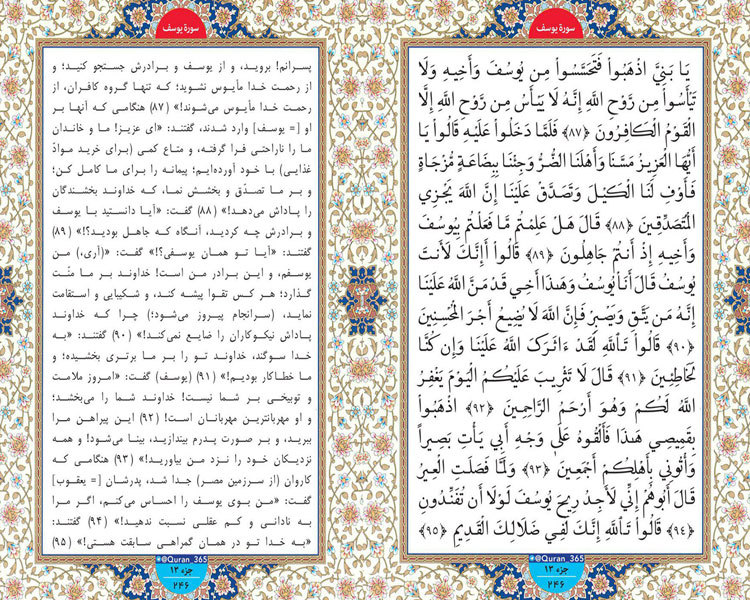 سورة یوسف
يَا بَنِيَّ اذْهَبُواْ فَتَحَسَّسُواْ مِن يُوسُفَ وَأَخِيهِ وَلَا
تَيْأَسُواْ مِن رَّوْحِ اللَّهِ إِنَّهُ لَا يَيْأَسُ مِن رَّوْحِ اللَّهِ إِلَّا
الْقَوْمُ الْكَافِرُونَ ﴿۸۷﴾ فَلَمَّا دَخَلُواْ عَلَيْهِ قَالُواْ يَا
أَيُّهَا الْعَزِيزُ مَسَّنَا وَأَهْلَنَا الضُّرُّ وَجِئْنَا بِبِضَاعَةٍ مُّزْجَاةٍ
فَأَوْفِ لَنَا الْكَيْلَ وَتَصَدَّقْ عَلَيْنَا إِنَّ اللَّهَ يَجْزِي
الْمُتَصَدِّقِينَ ﴿۸۸﴾ قَالَ هَلْ عَلِمْتُم مَّا فَعَلْتُم بِيُوسُفَ
وَأَخِيهِ إِذْ أَنتُمْ جَاهِلُونَ ﴿۸۹﴾ قَالُواْ أَإِنَّكَ لَأَنتَ
يُوسُفُ قَالَ أَنَاْ يُوسُفُ وَهَذَا أَخِي قَدْ مَنَّ اللَّهُ عَلَيْنَا
إِنَّهُ مَن يَتَّقِ وَيَصْبِرْ فَإِنَّ اللَّهَ لَا يُضِيعُ أَجْرَ الْمُحْسِنِينَ
﴿۹۰﴾ قَالُواْ تَاللَّهِ لَقَدْ ءَاثَرَكَ اللَّهُ عَلَيْنَا وَإِن كُنَّا
لَخَاطِئِينَ ﴿۹۱﴾ قَالَ لَا تَثْرِيبَ عَلَيْكُمُ الْيَوْمَ يَغْفِرُ
اللَّهُ لَكُمْ وَهُوَ أَرْحَمُ الرَّاحِمِينَ ﴿۹۲﴾ اذْهَبُواْ
بِقَمِيصِي هَذَا فَأَلْقُوهُ عَلَى وَجْهِ أَبِي يَأْتِ بَصِيراً
وَأْتُونِي بِأَهْلِكُمْ أَجْمَعِينَ ﴿۹۳﴾ وَلَمَّا فَصَلَتِ الْعِيرُ
قَالَ أَبُوهُمْ إِنِّي لَأَجِدُ رِيحَ يُوسُفَ لَوْلَا أَن تُفَنِّدُونِ
﴿۹۴﴾ قَالُواْ تَاللَّهِ إِنَّكَ لَفِي ضَلَالِكَ الْقَدِيمِ ﴿۹۵﴾
@Quran_365
جزء ۱۳
۲۴۶
سورة یوسف
پسرانم! بروید، و از یوسف و برادرش جستجو کنید؛ و
از رحمت خدا مأیوس نشوید؛ که تنها گروه کافران، از
رحمت خدا مأیوس می‌شوند!» (۸۷) هنگامی که آنها بر
او [= یوسف] وارد شدند، گفتند: «ای عزیز! ما و خاندان
ما را ناراحتی فرا گرفته، و متاع کمی (برای خرید موادّ
غذایی) با خود آورده‌ایم؛ پیمانه را برای ما کامل کن؛
و بر ما تصدّق و بخشش نما، که خداوند بخشندگان
را پاداش می‌دهد!» (۸۸) گفت: «آیا دانستید با یوسف
و برادرش چه کردید، آنگاه که جاهل بودید؟!» (۸۹)
گفتند: «آیا تو همان یوسفی؟!» گفت: «(آری،) من
یوسفم، و این برادر من است! خداوند بر ما منّت
گذارد؛ هر کس تقوا پیشه کند، و شکیبایی و استقامت
نماید، (سرانجام پیروز می‌شود؛) چرا که خداوند
پاداش نیکوکاران را ضایع نمی‌کند!» (۹۰) گفتند: «به
خدا سوگند، خداوند تو را بر ما برتری بخشیده؛ و
ما خطاکار بودیم!» (۹۱) (یوسف) گفت: «امروز ملامت
و توبیخی بر شما نیست! خداوند شما را می‌بخشد؛
و او مهربانترین مهربانان است! (۹۲) این پیراهن مرا
ببرید، و بر صورت پدرم بیندازید، بینا می‌شود! و همه
نزدیکان خود را نزد من بیاورید!» (۹۳) هنگامی که
کاروان (از سرزمین مصر) جدا شد، پدرشان [= یعقوب]
گفت: «من بوی یوسف را احساس می‌کنم، اگر مرا
به نادانی و کم عقلی نسبت ندهید!» (۹۴) گفتند:
«به خدا تو در همان گمراهی سابقت هستی!» (۹۵)
@Quran_365
جزء ۱۳
۲۴۶